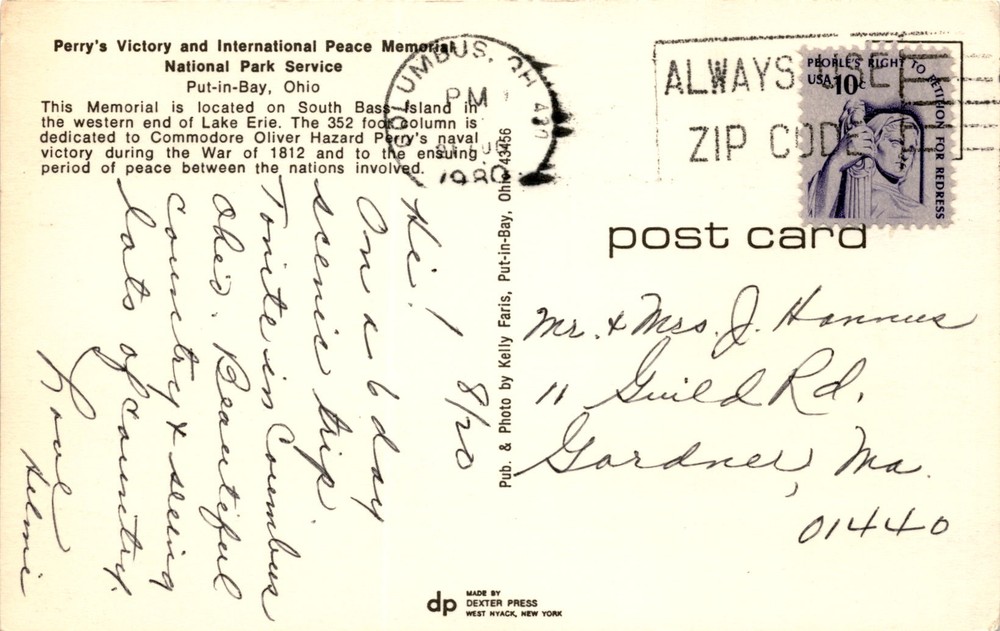 Perry's Victory and International Peace Memorial
National Park Service
Put-in-Bay, Ohio
This Memorial is located on South Bass Island in
the western end of Lake Erie. The 352 foot column is
dedicated to Commodore Oliver Hazard Perry's naval
victory during the War of 1812 and to the ensuing
period of peace between the nations involved.
COLUMBUS, OH 430
PM
1980
ALWAYS USE
ZIP CODE
PEOPLE'S RIGHT TO PETITION FOR REDRESS
USA 10c
post card
Hi! 8/20
On a 6 day
scenic trip.
Tonite in Coumbus
Ohio. Beautiful
country & seeing
lots of country.
Love
Helmi
Pub. & Photo by Kelly Faris, Put-in-Bay, Ohio 43456
Mr. & Mrs. J. Hannus
11 Guild Rd.
Gardner, Ma.
01440
dp
MADE BY
DEXTER PRESS
WEST NYACK, NEW YORK